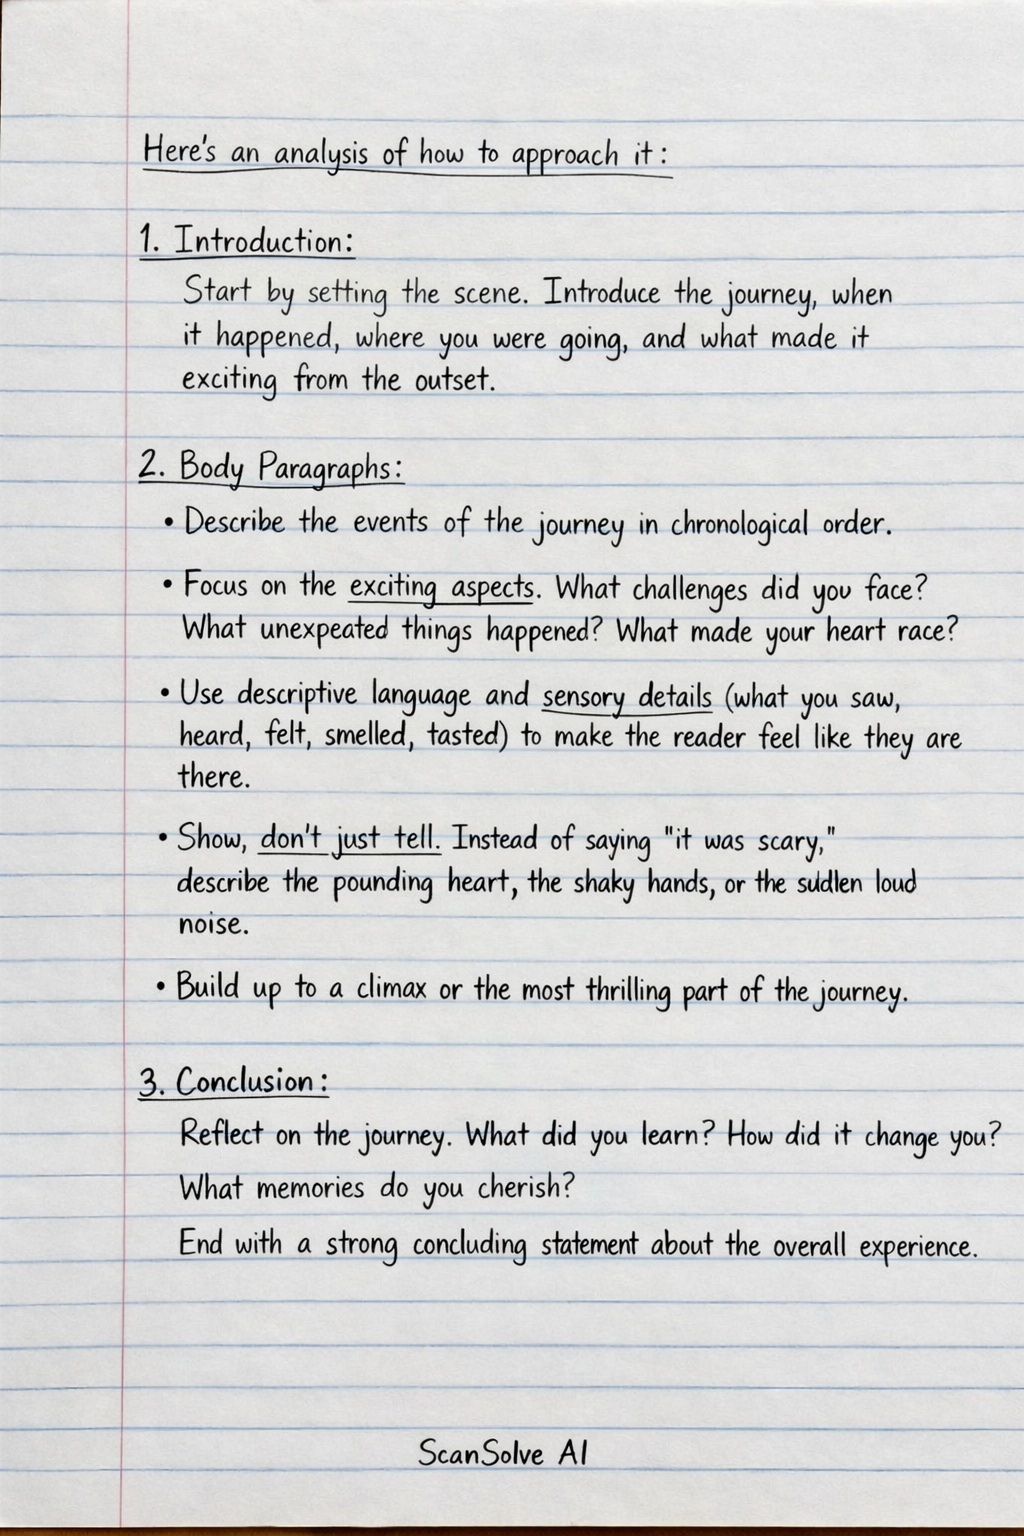 Here's an analysis of how to approach it:
1. Introduction:
Start by setting the scene. Introduce the journey, when
it happened, where you were going, and what made it
exciting from the outset.
2. Body Paragraphs:
• Describe the events of the journey in chronological order.
• Focus on the exciting aspects. What challenges did you face?
What unexpeated things happened? What made your heart race?
• Use descriptive language and sensory details (what you saw,
heard, felt, smelled, tasted) to make the reader feel like they are
there.
• Show, don't just tell. Instead of saying "it was scary,"
describe the pounding heart, the shaky hands, or the sudden loud
noise.
• Build up to a climax or the most thrilling part of the journey.
3. Conclusion:
Reflect on the journey. What did you learn? How did it change you?
What memories do you cherish?
End with a strong concluding statement about the overall experience.
ScanSolve AI